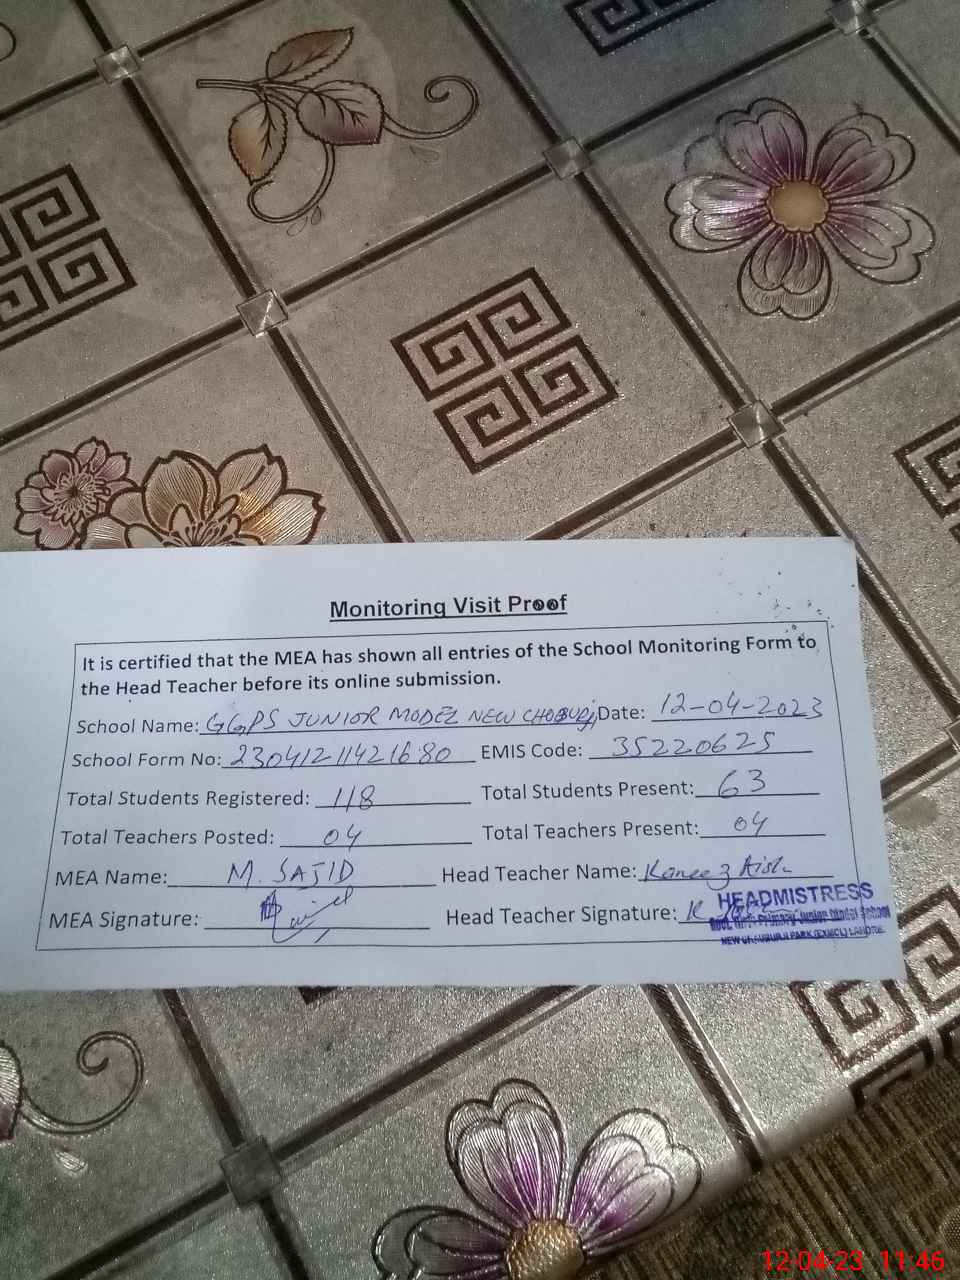 Monitoring Visit Proof
It is certified that the MEA has shown all entries of the School Monitoring Form to
the Head Teacher before its online submission.
School Name: GGPS JUNIOR MODEL NEW CHOBURJI Date: 12-04-2023
School Form No: 23041211421680 EMIS Code: 35220625
Total Students Registered: 118 Total Students Present: 63
Total Teachers Posted: 04 Total Teachers Present: 04
MEA Name: M. SAJID Head Teacher Name: Kaneez
MEA Signature: Head Teacher Signature:
HEADMISTRESS
Primary Junior Model School
NEW PARK LAHORE
12-04-23 11:46